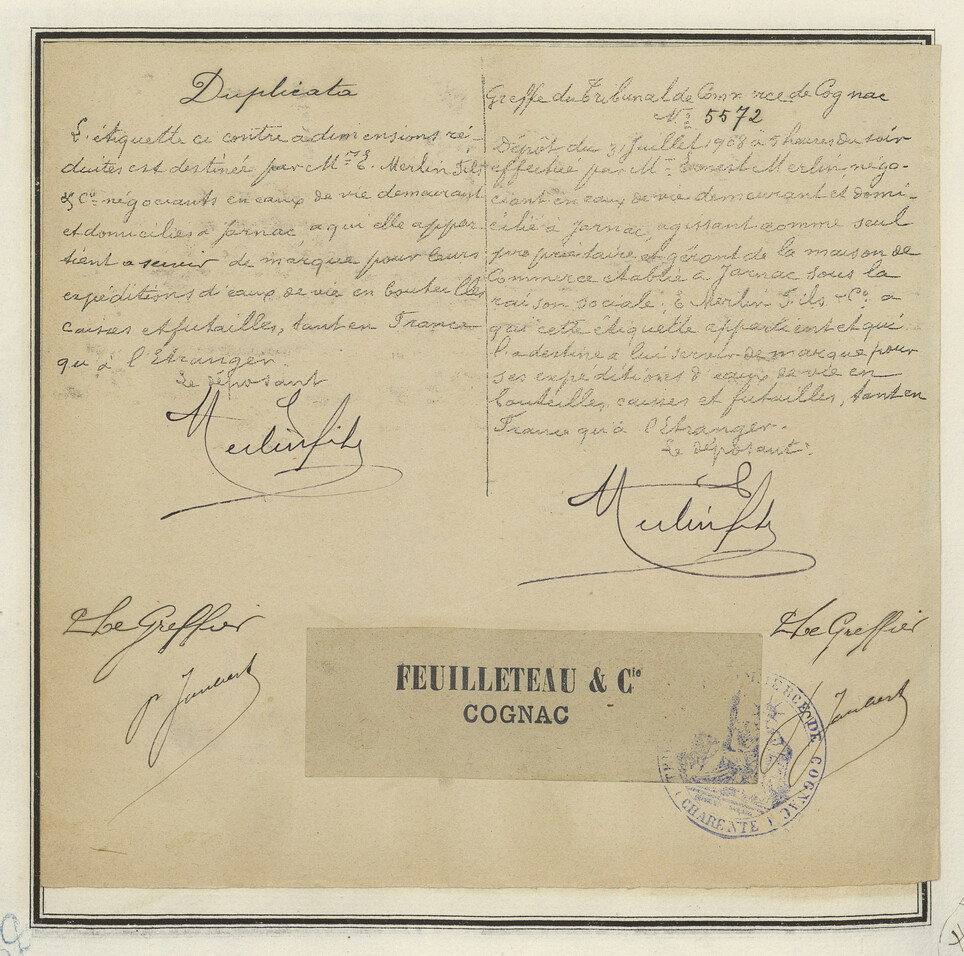 Duplicata
L'étiquette ci contre à dimensions ré-
duites est destinée par Mrs E. Merlin Fils
& Co négociants en eaux de vie demeurant
et domiciliés à Jarnac, a qui elle appar-
tient a servir de marque pour leurs
expéditions d'eaux de vie en bouteilles
caisses et futailles, tant en France
qu'à l'Etranger.
Le déposant
E Merlin fils
Greffe du Tribunal de Commerce de Cognac
No 5572
Dépôt du 31 Juillet 1908 à 5 heures du soir
effectué par Mr Ernest Merlin, négo-
ciant en eaux de vie demeurant et domi-
cilié à Jarnac, agissant comme seul
propriétaire et gérant de la maison de
Commerce établie à Jarnac sous la
raison sociale: E Merlin Fils & Co: a
qui cette étiquette appartient et qui
l'a destine a lui servir de marque pour
ses expéditions d'eaux de vie en
bouteilles, caisses et futailles, tant en
France qu'à l'Etranger.
Le déposant:
E Merlin fils
Le Greffier
p. Jaubert
Le Greffier
Jaubert
FEUILLETEAU & Cie
COGNAC
COMMERCE DE COGNAC
(CHARENTE)